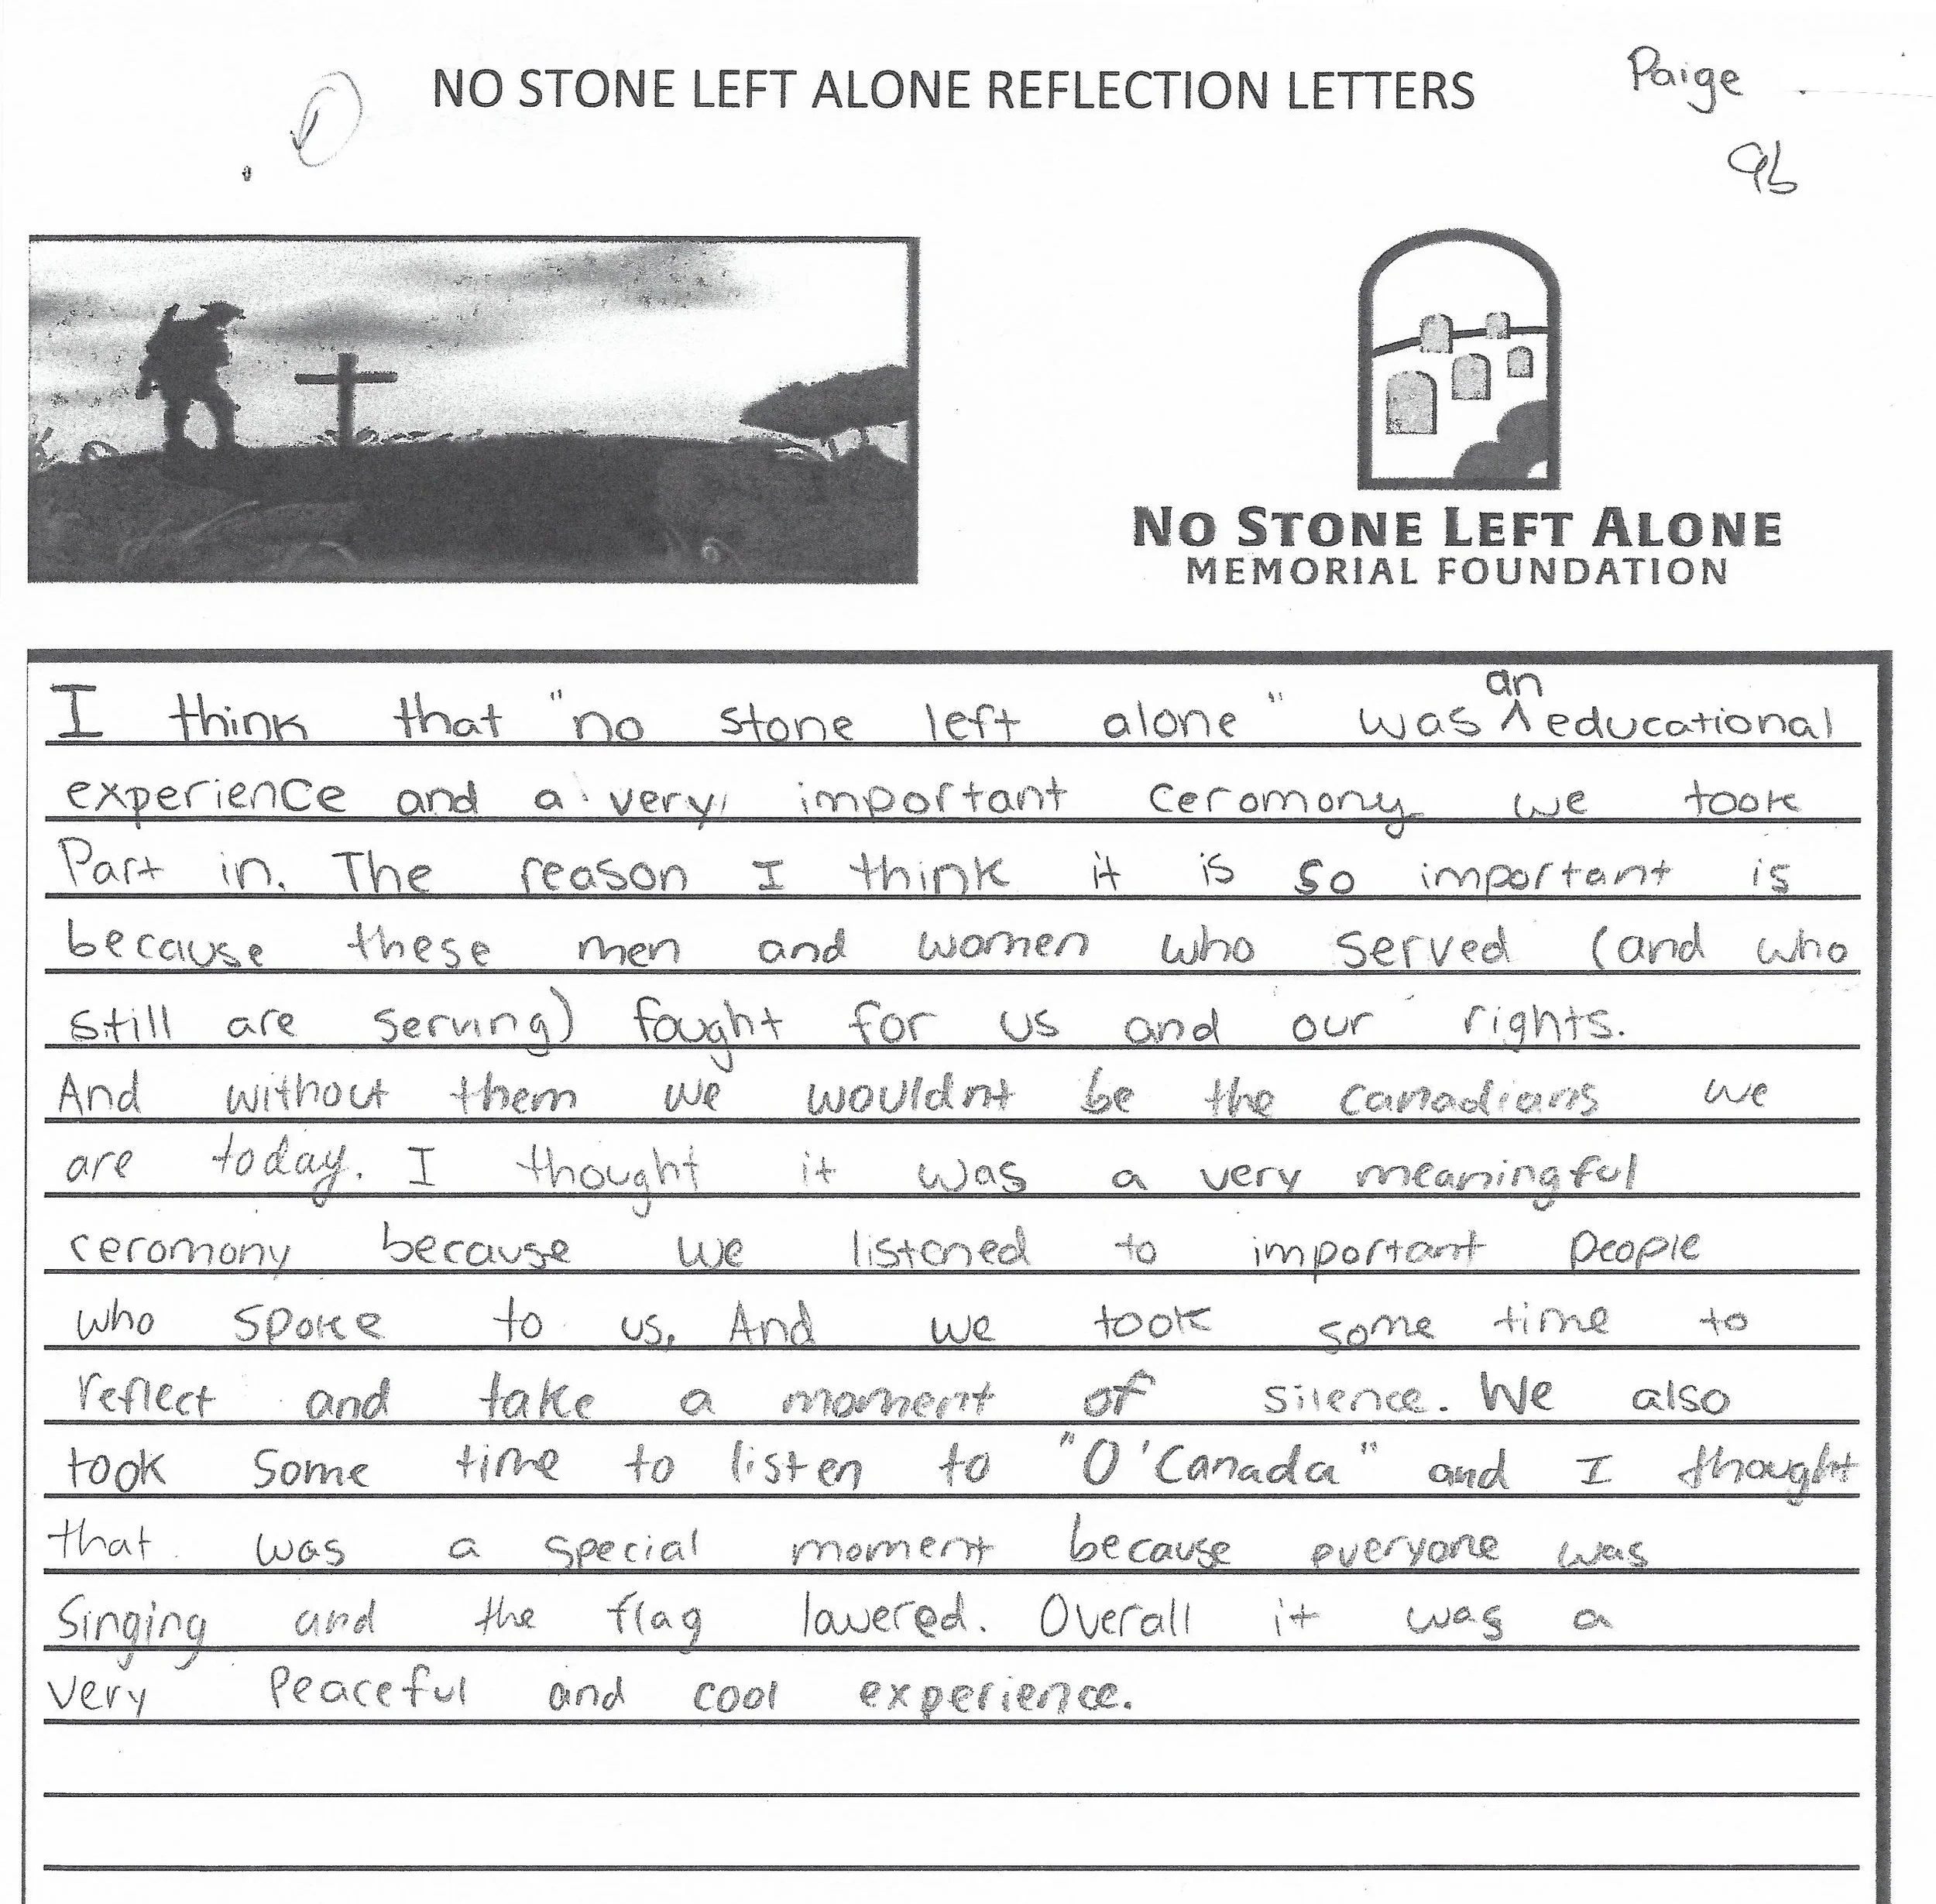 NO STONE LEFT ALONE REFLECTION LETTERS
Paige
9b
NO STONE LEFT ALONE
MEMORIAL FOUNDATION
I think that "no stone left alone" was ^an educational
experience and a very important ceromony we took
Part in. The reason I think it is so important is
because these men and women who served (and who
still are serving) fought for us and our rights.
And without them we wouldnt be the canadians we
are today. I thought it was a very meaningful
ceromony because we listened to important people
who spoke to us, And we took some time to
reflect and take a moment of silence. We also
took some time to listen to "O'Canada" and I thought
that was a special moment because everyone was
Singing and the flag lowered. Overall it was a
very Peaceful and cool experience.